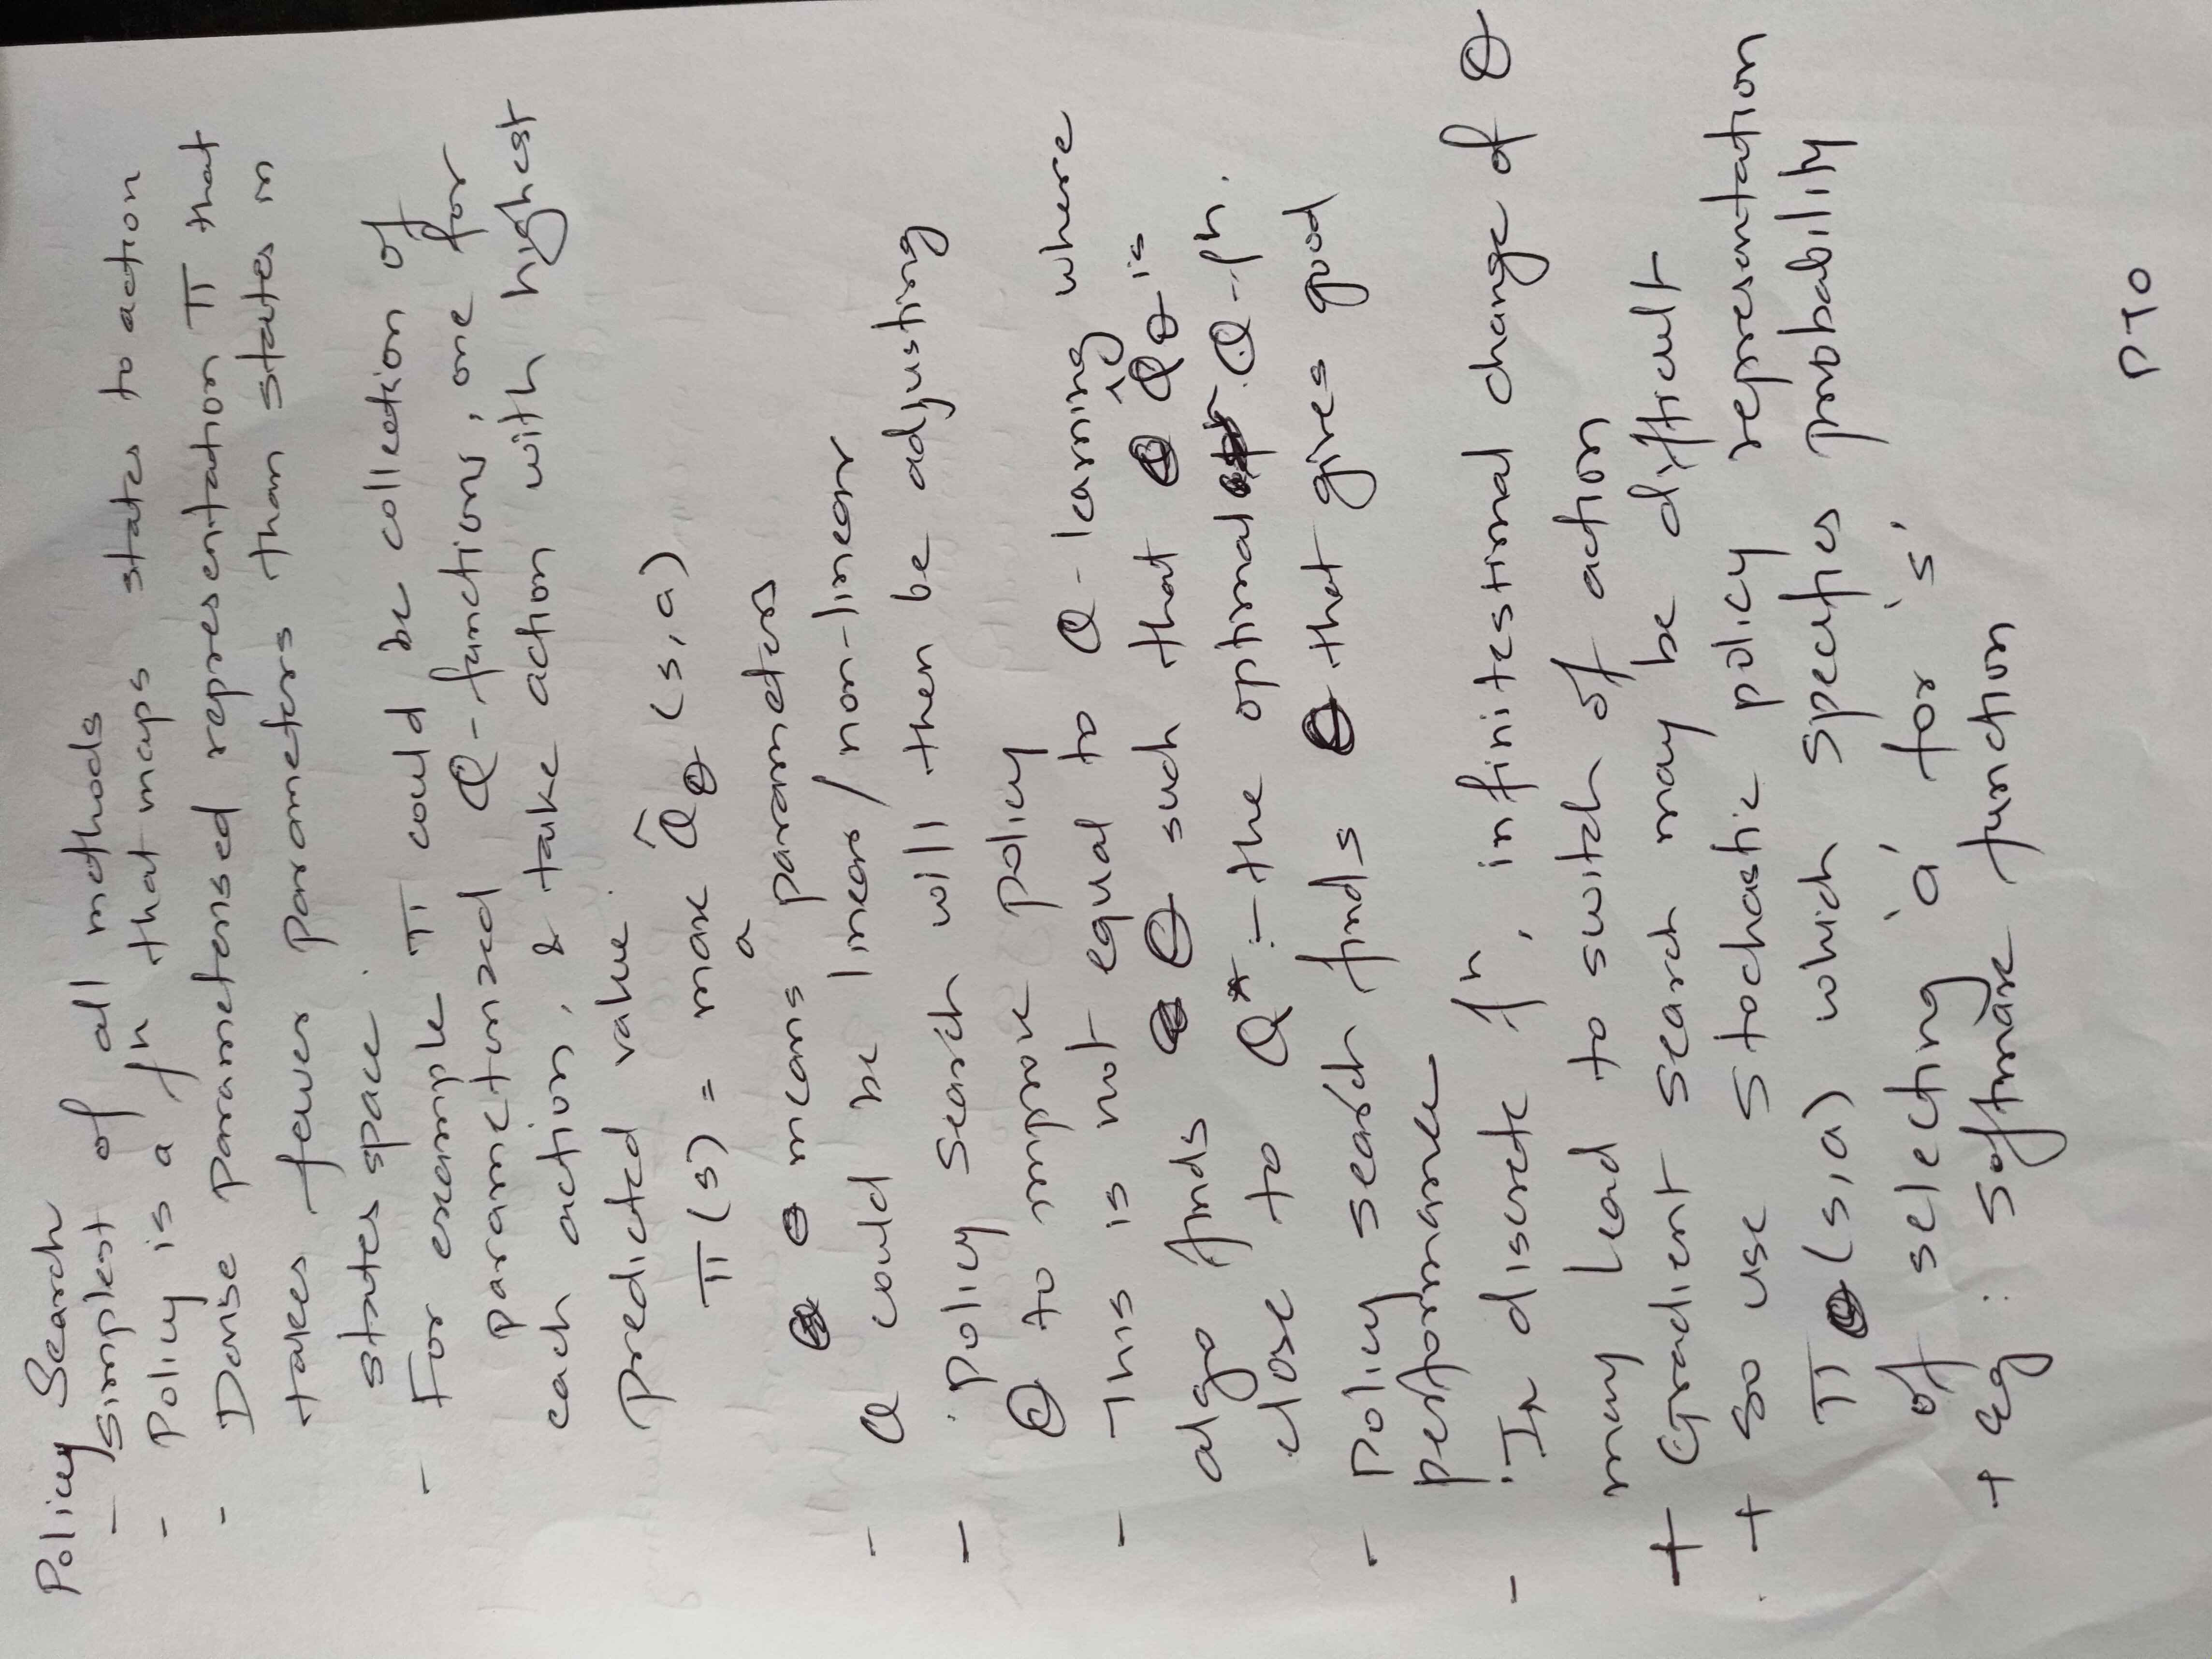 Policy Search
- simplest of all methods
- Policy is a fⁿ that maps states to action
- Dense parameterised representation π that
takes fewer parameters than states in
states space.
- For example π could be collection of
parameterized Q-functions, one for
each action, & take action with highest
predicted value.
π(s) = max Q̂θ (s,a)
a
θ means parameters
- Q could be linear/non-linear
- Policy search will then be adjusting
θ to improve policy
- This is not equal to Q-learning where
algo finds θ such that Q̂θ is
close to Q* :- the optimal Q-fⁿ.
- Policy search finds θ that gives good
performance
- In discrete fⁿ, infinitestimal change of θ
may lead to switch of action
+ Gradient search may be difficult
+ so use stochastic policy representation
πθ(s,a) which specifies probability
of selecting 'a' for 's'
+ Eg : Softmax function
PTO